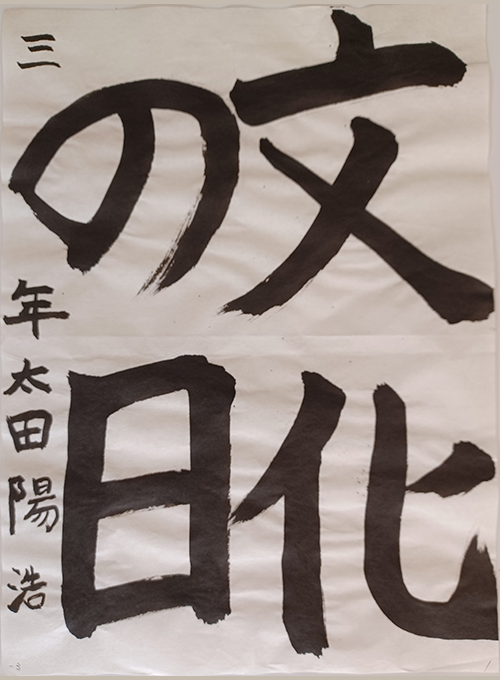 文化
の日
三年太田陽浩